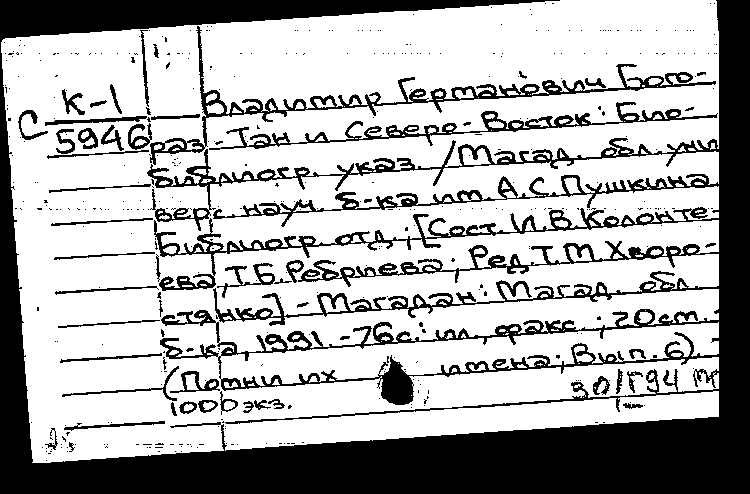 С К-1
5946
Владимир Германович Бого-
раз-Тан и Северо-Восток: Био-
библиогр. указ. /Магад. обл. уни
верс. науч. б-ка им. А.С.Пушкина.
Библиогр. отд.; [Сост. И.В.Колонте-
ева, Т.Б.Ребриева; Ред. Т.М.Хворо-
стянко] - Магадан: Магад. обл.
б-ка, 1991. - 76с.: ил., факс.; 20см. -
(Помни их имена; Вып. 6). -
1000 экз.